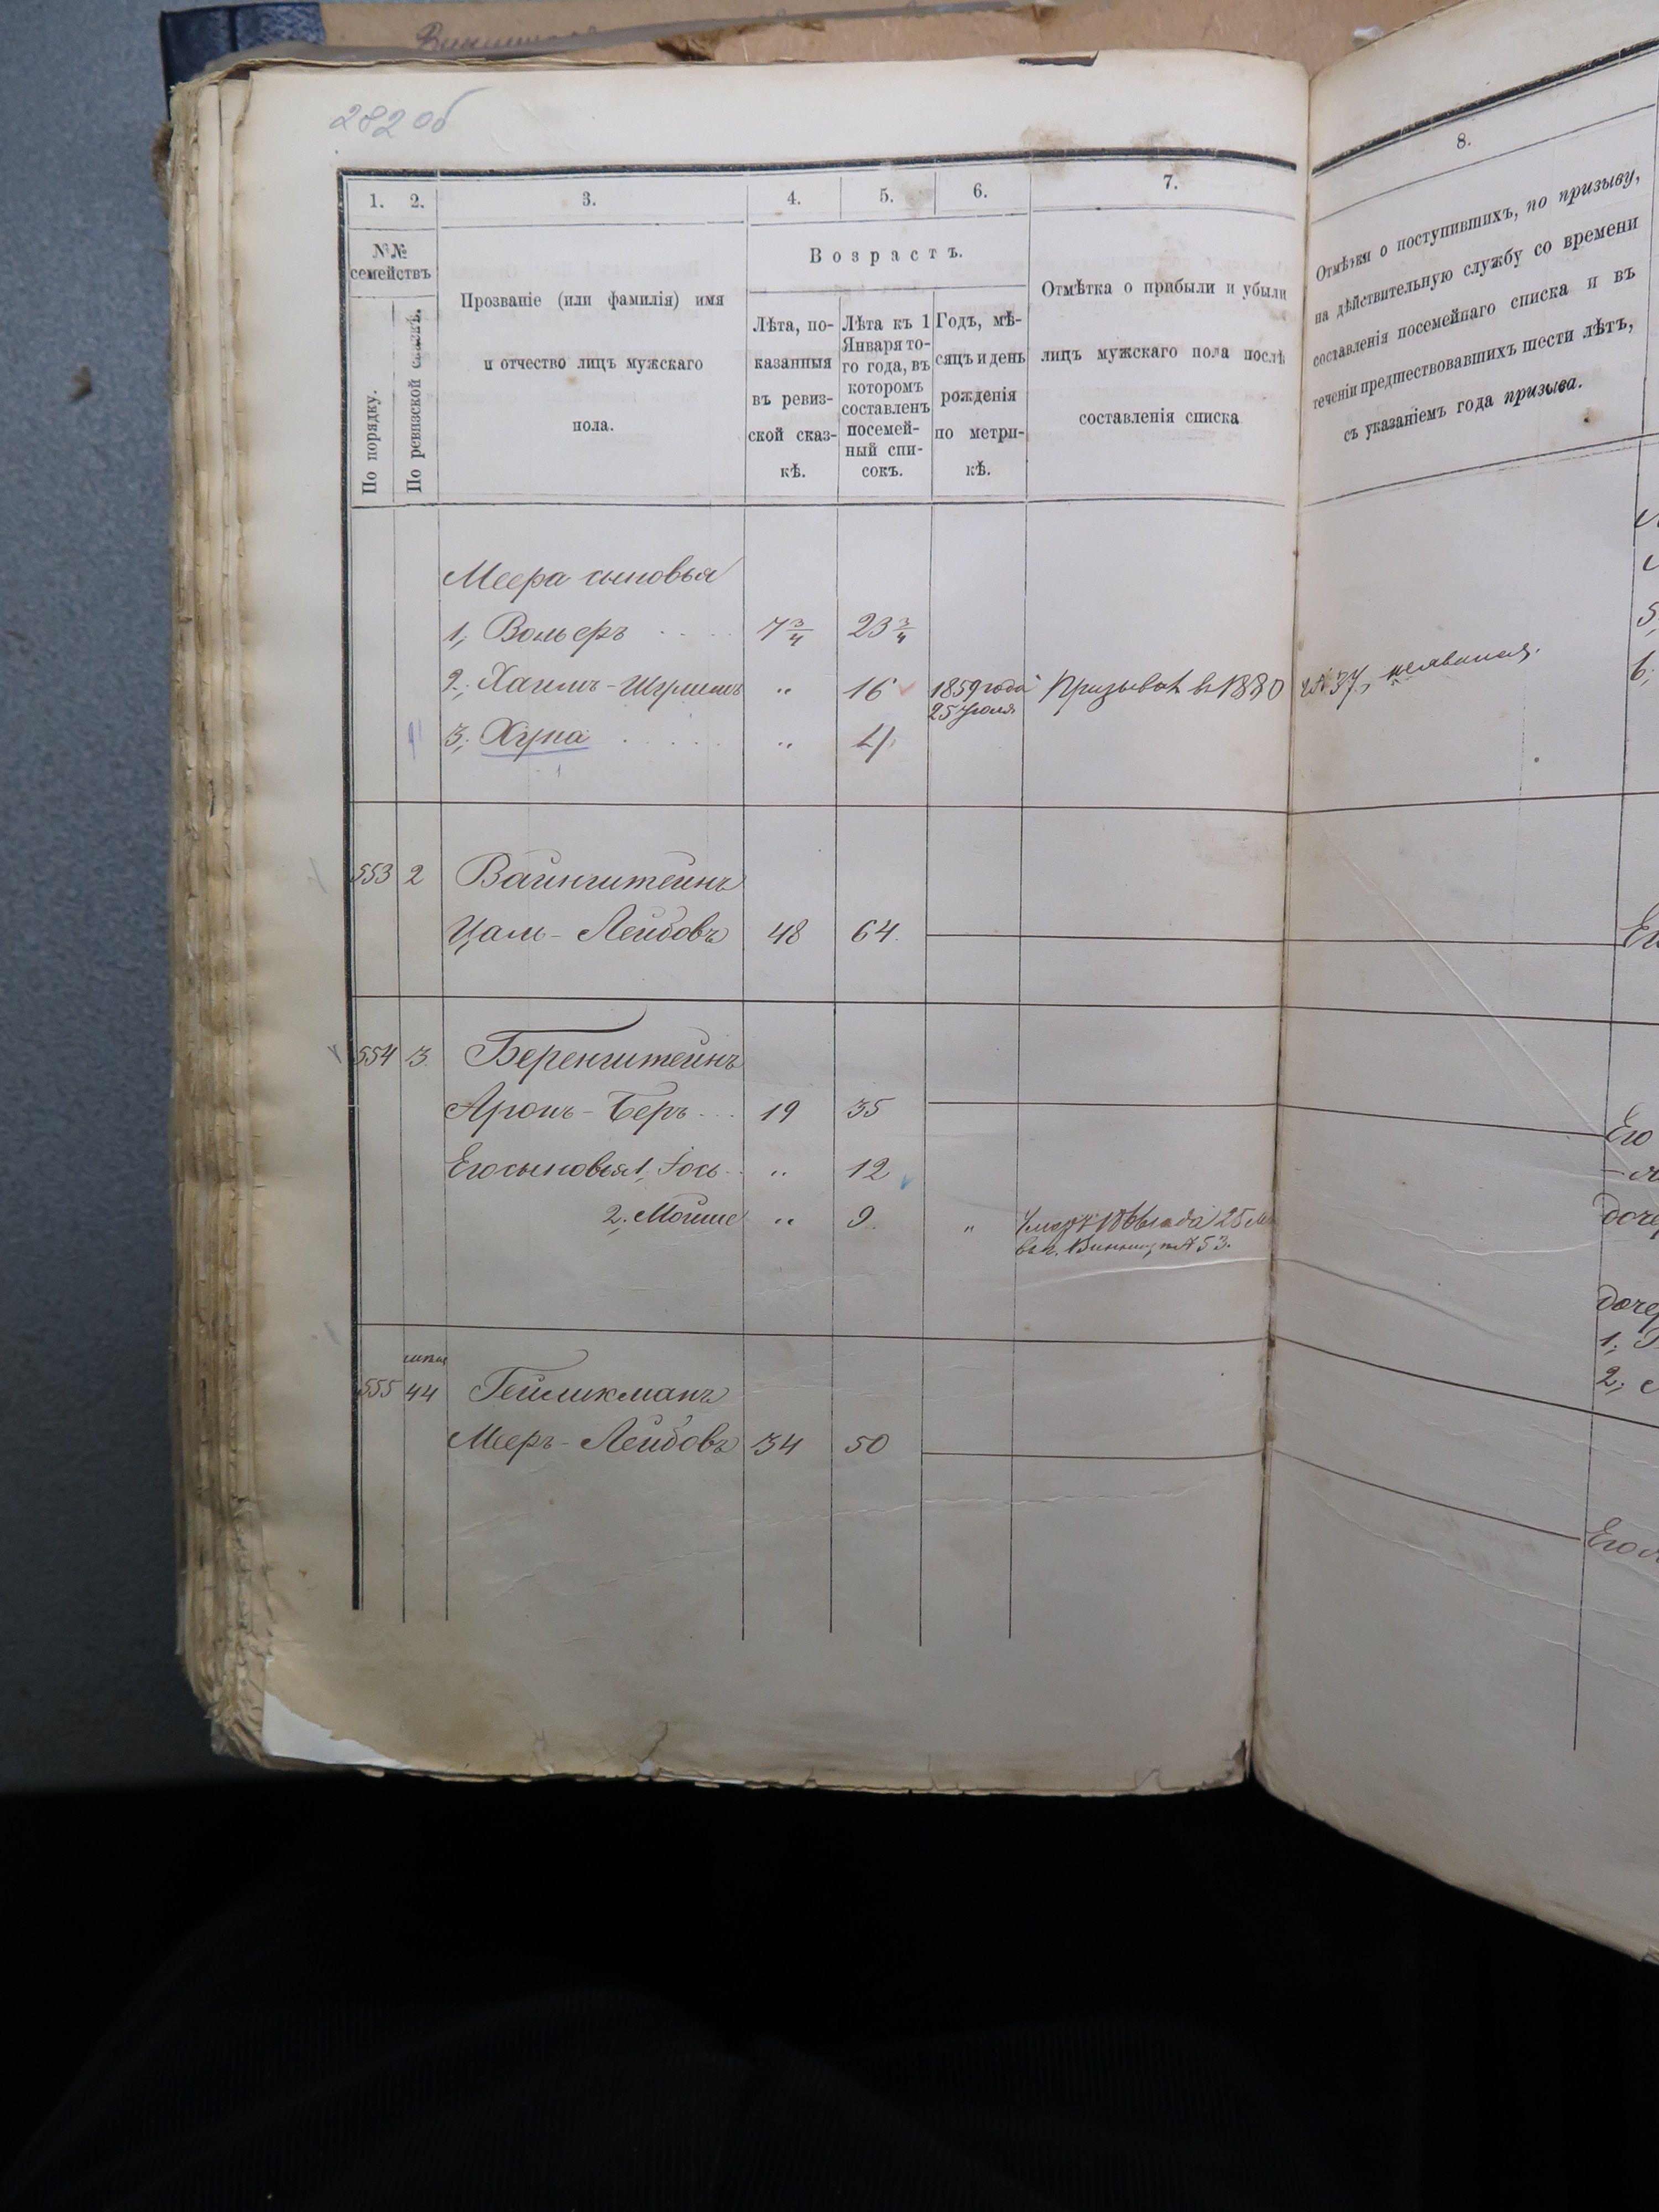 282 об
1. 2. 3. 4. 5. 6. 7. 8.
№№ семействъ
По порядку.
По ревизской сказкѣ.
Прозваніе (или фамилія) имя
и отчество лицъ мужскаго
пола.
Возрастъ.
Лѣта, по-
казанныя
въ ревиз-
ской сказ-
кѣ.
Лѣта къ 1
Января то-
го года, въ
которомъ
составленъ
посемей-
ный спи-
сокъ.
Годъ, мѣ-
сяцъ и день
рожденія
по метри-
кѣ.
Отмѣтка о прибыли и убыли
лицъ мужскаго пола послѣ
составленія списка
Отмѣтки о поступившихъ, по призыву,
на дѣйствительную службу со времени
составленія посемейнаго списка и въ
теченіи предшествовавшихъ шести лѣтъ,
съ указаніемъ года призыва.
Меера сыновья
1, Вольеръ 7 3/4 23 3/4
2, Хаимъ- 16 1859 года Призыва въ 1880 № 37, неявился.
25 Іюля
3, Хуна 4
553 2 Вайнштейнъ
Цаль-Лейбовъ 48 64.
554 3 Беренштейнъ
Аронъ-Беръ 19 35
Его сыновья 1, Іось 12
2, Мойше 9
въ г. № 53.
555 44 Гейликманъ
Мееръ-Лейбовъ 34 50
5,
6,
Его
дочер
дочер
1,
2,
Его